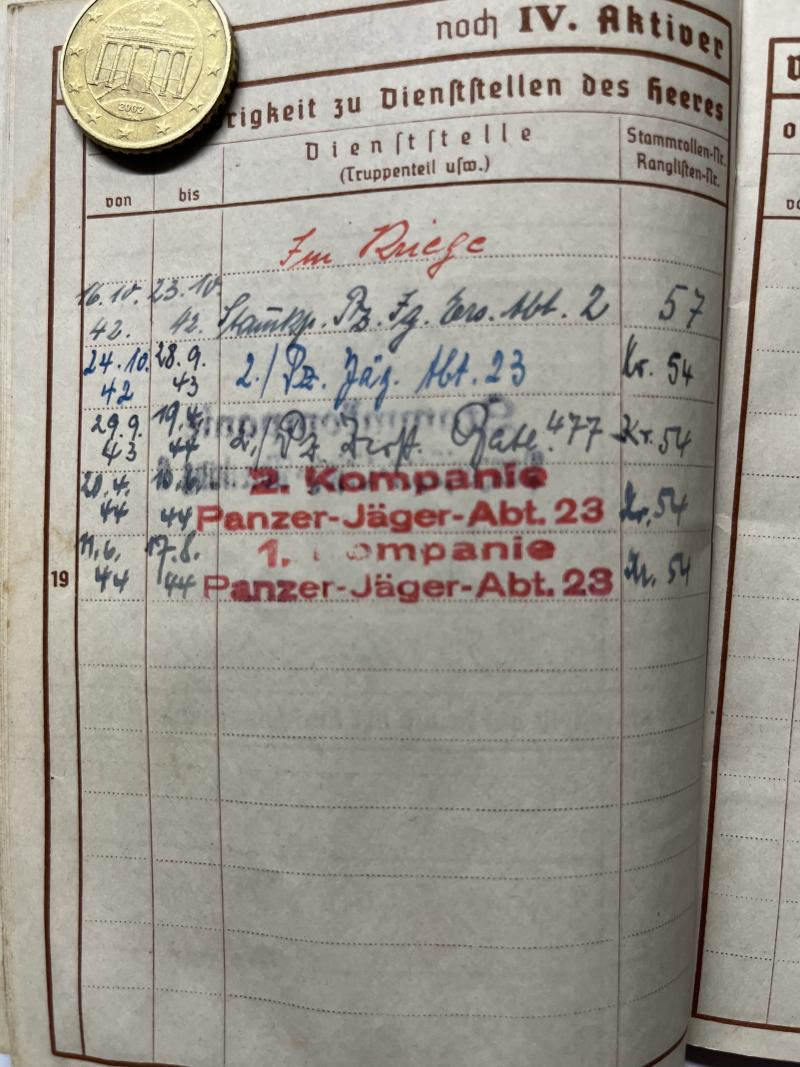 2002
noch IV. Aktiver
rigkeit zu Dienststellen des Heeres
von
bis
Dienststelle
(Truppenteil usw.)
Stammrollen-Nr.
Ranglisten-Nr.
Im Kriege
16.10. 42. 23.10. 42. Stammkp. Pz. Jg. Ers. Abt. 2 57
24.10. 42 28.9. 43 2./Pz. Jäg. Abt. 23 Kr. 54
29.9. 43 19.4. 44 2./Pz. 477 Kr. 54
20.4. 44 44 2. Kompanie
Panzer-Jäger-Abt. 23 Kr. 54
11.6. 44 44 1. ompanie
Panzer-Jäger-Abt. 23 Kr. 54
19